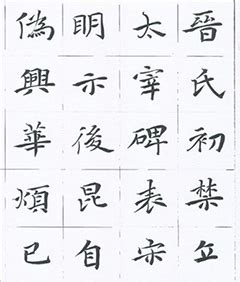 晉氏初禁立
太宰碑表宋
明示後昆自
偽興華煩已